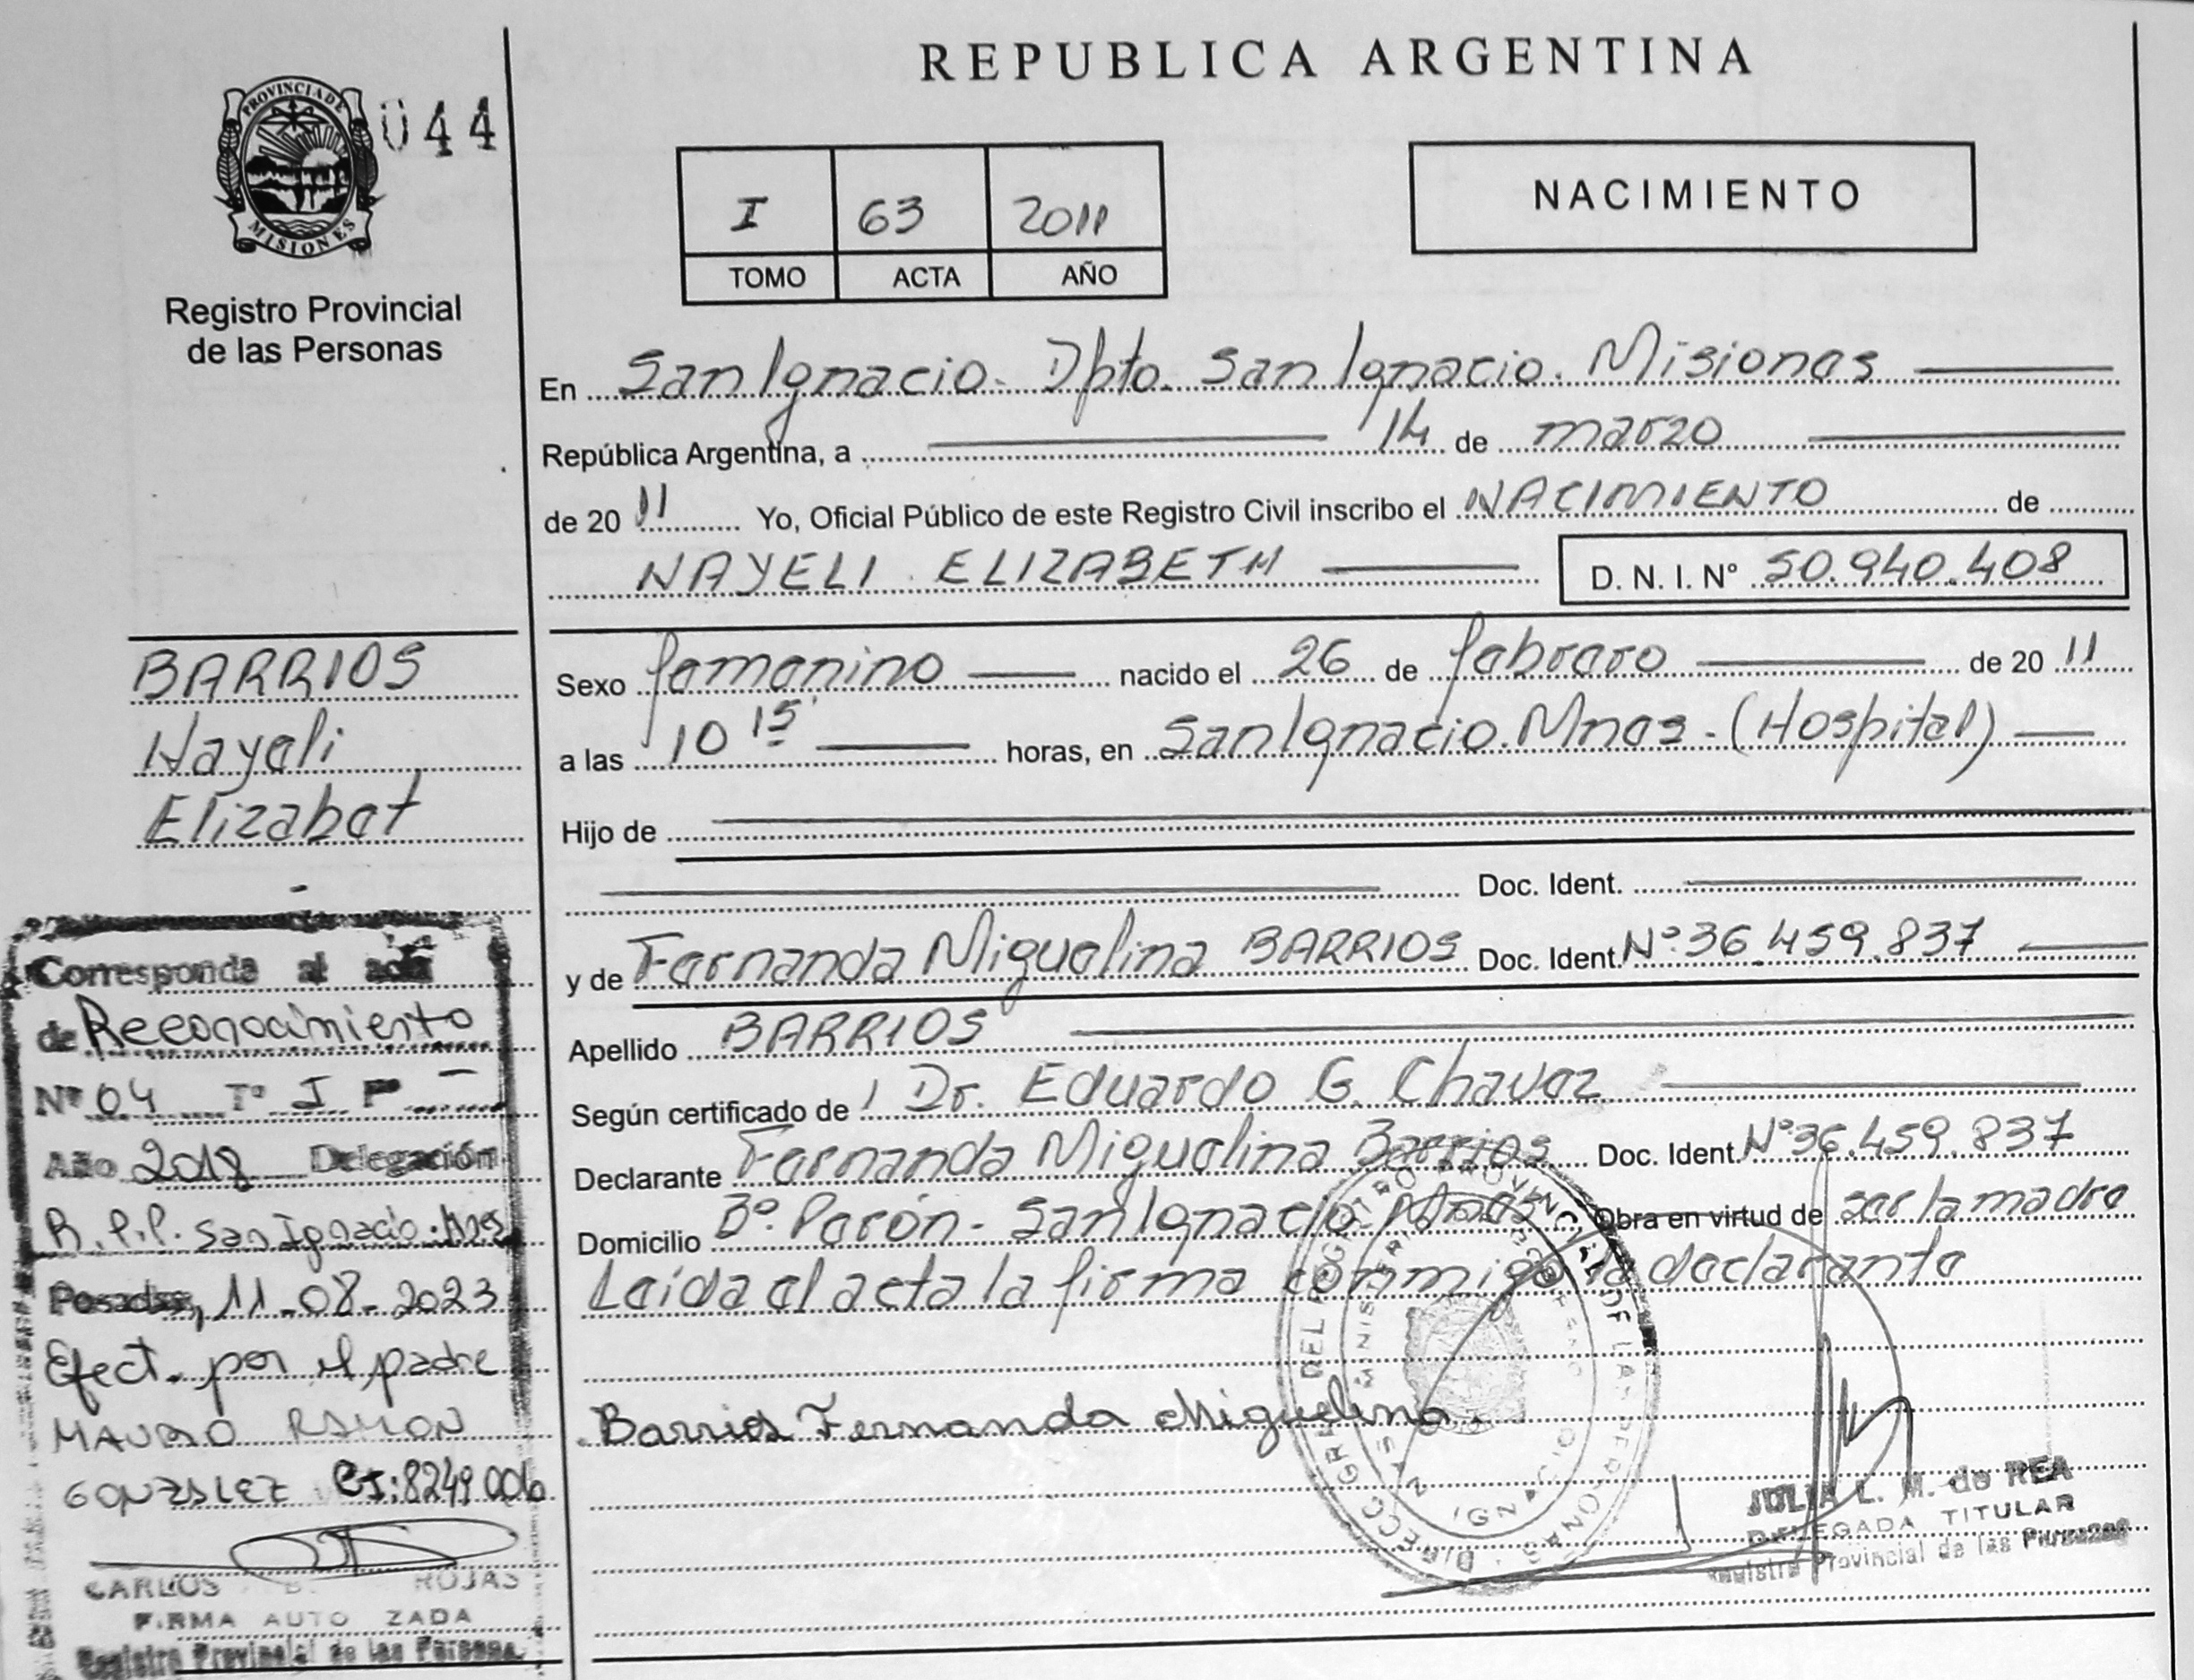 REPUBLICA ARGENTINA
PROVINCIA DE
MISIONES
044
Registro Provincial
de las Personas
I 63 2011
TOMO ACTA AÑO
NACIMIENTO
En San Ignacio. Dpto. San Ignacio. Misiones
República Argentina, a 14 de marzo
de 2011 Yo, Oficial Público de este Registro Civil inscribo el NACIMIENTO de
NAYELI ELIZABETH D. N. I. Nº 50.940.408
BARRIOS
Nayeli
Elizabet
Sexo femenino nacido el 26 de febrero de 2011
a las 10 15' horas, en San Ignacio. Mnes - (Hospital)
Hijo de
Doc. Ident.
y de Fernanda Miguelina BARRIOS Doc. Ident. Nº 36.459.837
Apellido BARRIOS
Según certificado de Dr. Eduardo G. Chavez
Declarante Fernanda Miguelina Barrios Doc. Ident. Nº 36.459.837
Domicilio Bº. Perón - San Ignacio Mnes Obra en virtud de ser la madre
Leída el acta la firma conmigo la declarante
Barrios Fernanda Miguelina.
JULIA L. M. de REA
DELEGADA TITULAR
Registro Provincial de las Personas
Corresponda al acta
de Reconocimiento
Nº 04 Tº I F -
Año 2018 Delegación
R.P.P. San Ignacio. Mnes
Posadas, 11-08-2023
Efect. por el padre
MAURO RAMON
GONZALEZ CI: 8249006
CARLOS ROJAS
FIRMA AUTO ZADA
Registro Provincial de las Persona